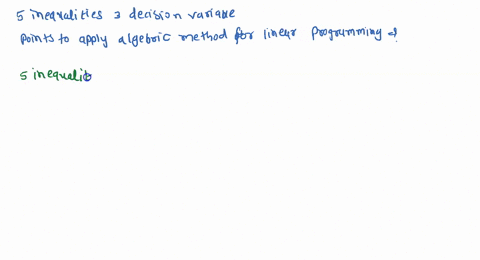 5 inequalities 3 decision variable
points to apply algeboic method for linear programming ?
5 inequalit